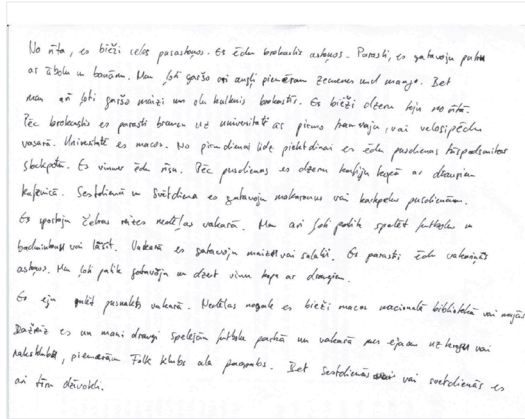 No rīta, es bieži celos parastoņos. Es ēdu brokastis astoņos. Parasti, es gatavoju putru
ar ābolu un banānu. Man ļoti garšo arī augļi piemēram zemenes und mango. Bet
man arī ļoti garšo maizi un olu kultenis brokastīs. Es bieži dzeru teju no rīta.
Pēc brokastis es parasti braucu uz univeritātē ar pirmo tramvaju, vai velosipēdu
vasarā. Univeritātē es macos. No pirmdienai līdz piektdinai es ēdu pusdienas
Es vinmer ēdu rīsu. Pēc pusdienas es dzeru kopā ar draugiem
kafenīcā. Sestdienā un Svētdiena es gatavoju makaronus vai kartupeļu pusdienām.
Es valodas nedēļas vakarā. Man arī ļoti patīk spelēt futbolu un
vai lāsīt. Vakarā es gatavoju maizi vai salāti. Es parasti ēdu vakariņās
astoņos. Man ļoti patīk gatavoju un dzert vinu kopa ar draugiem.
Es eju gulēt pusnaktis vakarā. Nedēļas nogale es bieži macos nacionalā bibliotēkā vai majās
Dažreiz es un mani draugi spelejām futbolu parkā un vakarā mes ejam uz vai
naktsklubs, piemēram Folk klubs ala pagrabs. Bet sestdienās vai svetdienās es
arī tīru dzivokli.